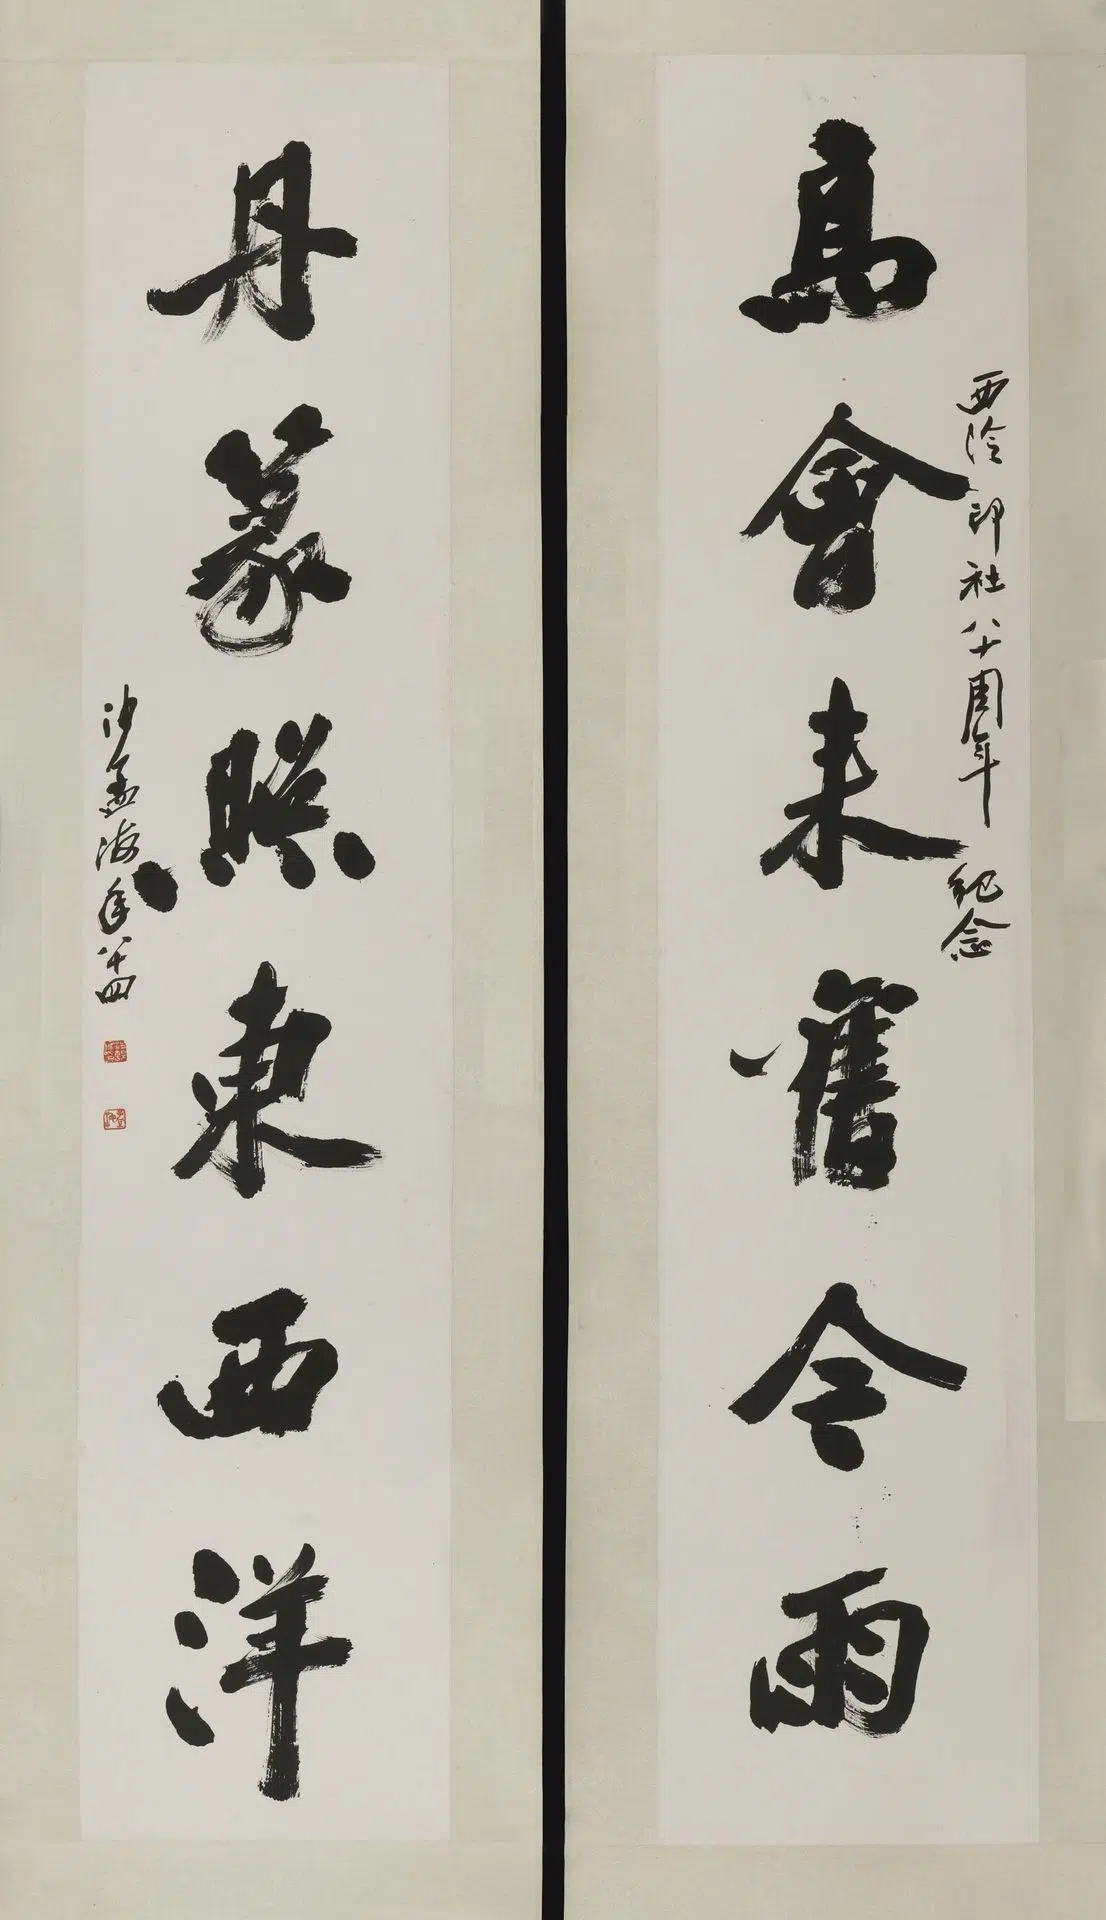 島會来舊今雨
西泠印社八十周年紀念
丹篆照東西洋
沙孟海年八十四